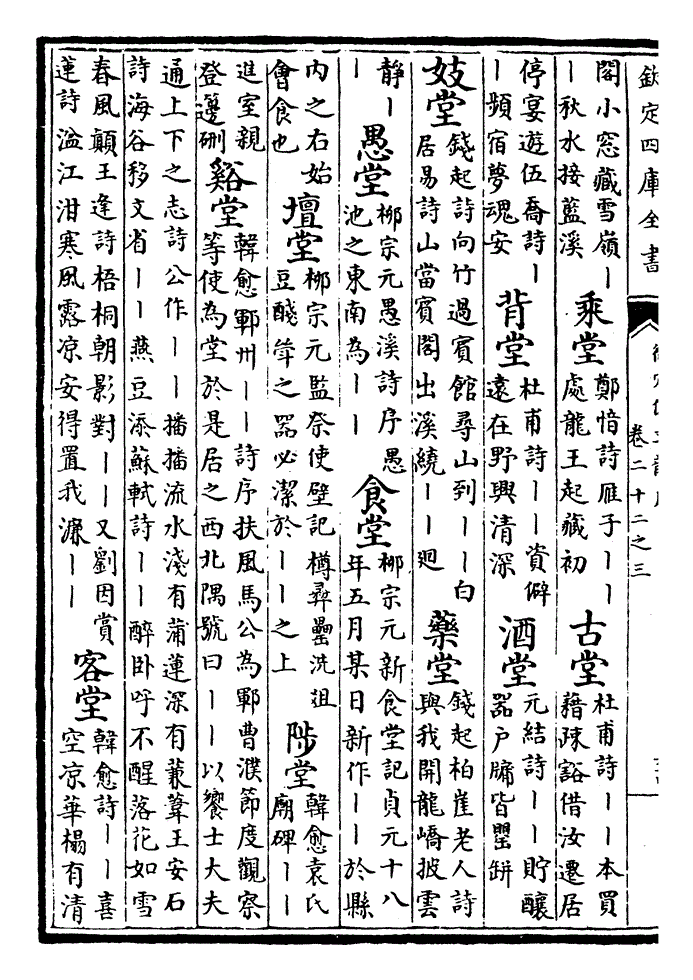 欽定四庫全書
卷二十二之三
閣小窓藏雪嶺丨
丨秋水接藍溪
乘堂
鄭愔詩雁子丨丨
處龍王起藏初
古堂
杜甫詩丨丨本買
藉疎豁借汝遷居
停宴遊伍喬詩丨
丨頻宿夢魂安
背堂
杜甫詩丨丨資僻
遠在野興清深
酒堂
元結詩丨丨貯釀
器户牖皆罌缾
妓堂
錢起詩向竹過賓館尋山到丨丨白
居易詩山當賓閣出溪繞丨丨廻
藥堂
錢起柏崖老人詩
與我開龍嶠披雲
静丨
丨
愚堂
柳宗元愚溪詩序愚
池之東南為丨丨
食堂
柳宗元新食堂記貞元十八
年五月某日新作丨丨於縣
内之右始
會食也
壇堂
柳宗元監祭使壁記樽彛罍洗俎
豆醆斝之器必潔於丨丨之上
陟堂
韓愈袁氏
廟碑丨丨
進室親
登籩铏
谿堂
韓愈鄆州丨丨詩序扶風馬公為鄆曹濮節度觀察
等使為堂於是居之西北隅號曰丨丨以饗士大夫
通上下之志詩公作丨丨播播流水淺有蒲蓮深有蒹葦王安石
詩海谷移文省丨丨燕豆添蘇軾詩丨丨醉卧呼不醒落花如雪
春風顛王逢詩梧桐朝影對丨丨又劉因賞
蓮詩湓江泔寒風露凉安得置我濂丨丨
客堂
韓愈詩丨丨喜
空凉華榻有清